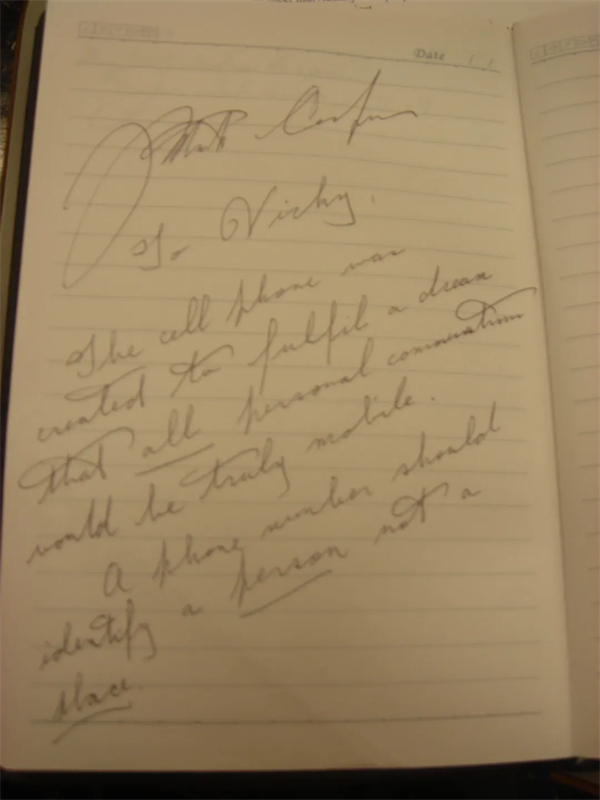 Date / /
Mart Cooper
To Vichy.
The cell phone was
created to fulfil a dream
that all personal communication
would be truly mobile.
A phone number should
identify a person not a
place.